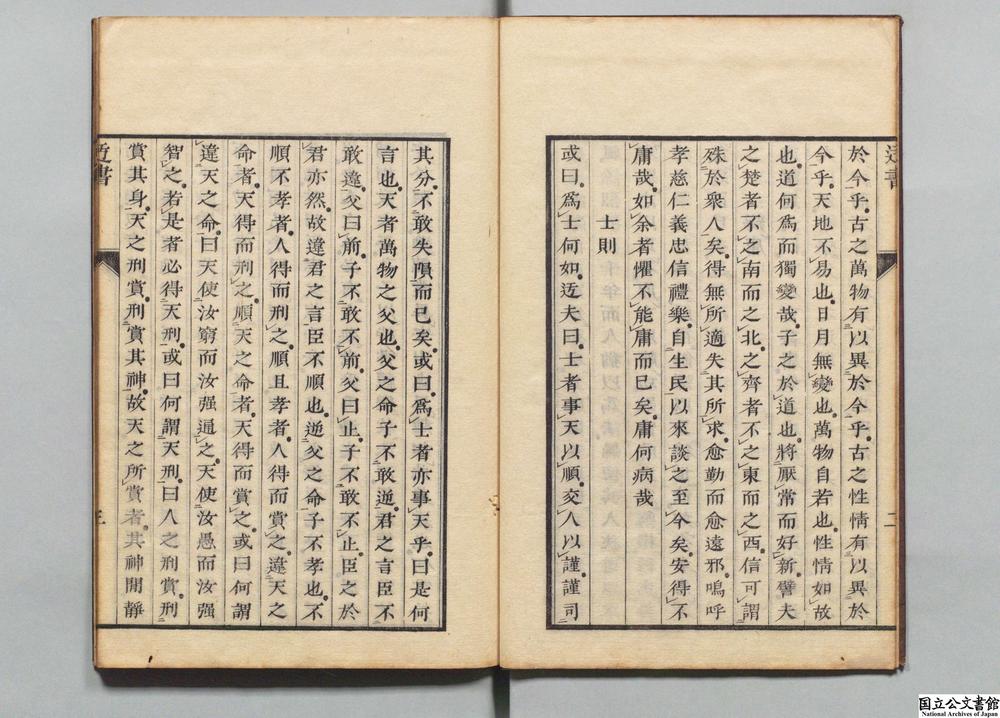 於今乎。古之萬物有以異於今乎。古之性情有以異於
今乎。天地不易也。日月無變也。萬物自若也。性情如故
也。道何爲而獨變哉。子之於道也。將厭常而好新。譬夫
之楚者不之南而之北。之齊者不之東而之西。信可謂
殊於衆人矣。得無所適失其所求。愈勤而愈遠邪。嗚呼
孝慈仁義忠信禮樂。自生民以來談之。至今矣。安得不
庸哉。如余者懼不能庸而已矣。庸何病哉
士則
或曰。爲士何如。迃夫曰。士者事天以順。交人以謹。謹司
二
其分。不敢失隕而已矣。或曰。爲士者亦事天乎。曰是何
言也。天者萬物之父也。父之命子不敢逆。君之言臣不
敢違。父曰前。子不敢不前。父曰止。子不敢不止。臣之於
君亦然。故違君之言。臣不順也。逆父之命。子不孝也。不
順不孝者。人得而刑之。順且孝者。人得而賞之。違天之
命者。天得而刑之。順天之命者。天得而賞之。或曰何謂
違天之命。曰天使汝窮而汝强通之。天使汝愚而汝强
智之。若是者必得天刑。或曰何謂天刑。曰人之刑賞。刑
賞其身。天之刑賞。刑賞其神。故天之所賞者。其神閒靜
迃書
三
国立公文書館
National Archives of Japan